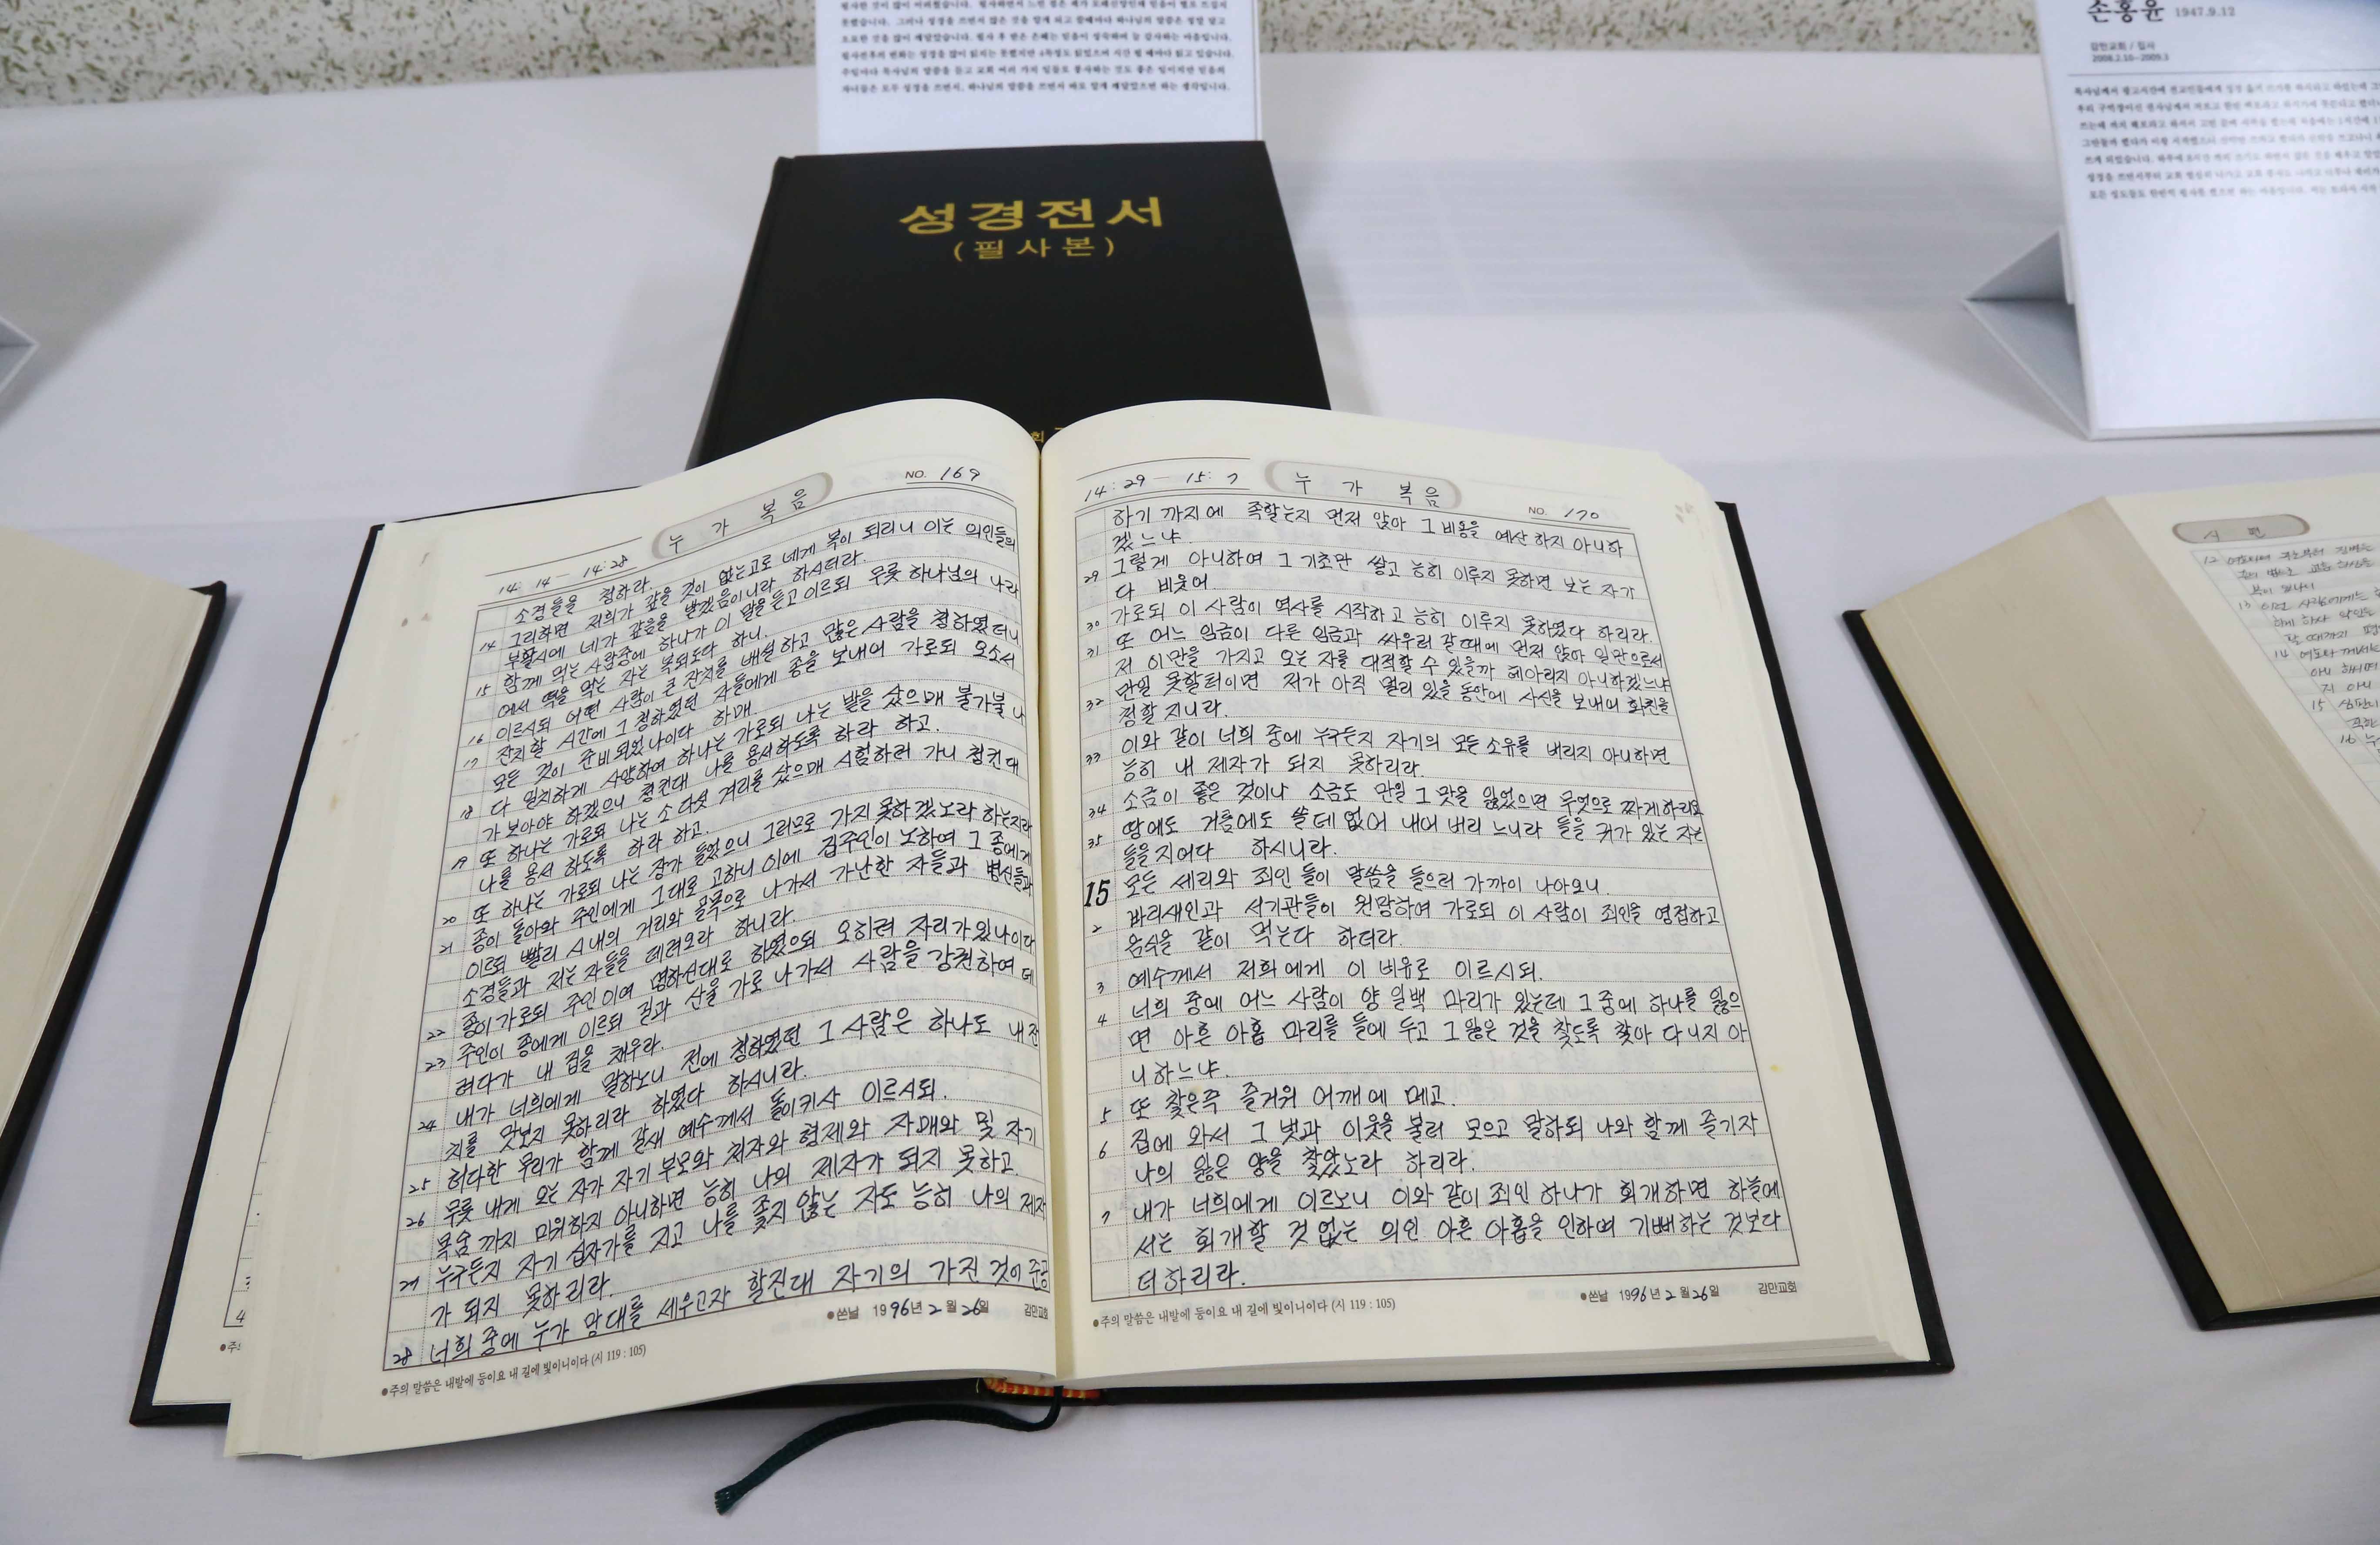 손홍윤 1947.9.12
감만교회 / 집사
2008.2.10~2009.3
성경전서
(필사본)
NO. 169
누가복음
14:14 - 14:28
소경들을 청하라.
14 그리하면 저희가 갚을 것이 없는고로 네게 복이 되리니 이는 의인들의
부활시에 네가 갚음을 받겠음이니라 하시더라.
15 함께 먹는 사람중에 하나가 이 말을 듣고 이르되 무릇 하나님의 나라
에서 떡을 먹는 자는 복되도다 하니.
16 이르시되 어떤 사람이 큰 잔치를 배설하고 많은 사람을 청하였더니
17 잔치할 시간에 그 청하였던 자들에게 종을 보내어 가로되 오소서
모든 것이 준비되었나이다 하매.
18 다 일치하게 사양하여 하나는 가로되 나는 밭을 샀으매 불가불 나
가 보아야 하겠으니 청컨대 나를 용서하도록 하라 하고.
19 또 하나는 가로되 나는 소 다섯 겨리를 샀으매 시험하러 가니 청컨대
나를 용서 하도록 하라 하고.
20 또 하나는 가로되 나는 장가 들었으니 그러므로 가지 못하겠노라 하는지라
21 종이 돌아와 주인에게 그대로 고하니 이에 집주인이 노하여 그 종에게
이르되 빨리 시내의 거리와 골목으로 나가서 가난한 자들과 병신들과
소경들과 저는 자들을 데려오라 하니라.
22 종이 가로되 주인이여 명하신대로 하였으되 오히려 자리가 있나이다
23 주인이 종에게 이르되 길과 산울 가로 나가서 사람을 강권하여 데
려다가 내 집을 채우라.
24 내가 너희에게 말하노니 전에 청하였던 그 사람은 하나도 내 잔
치를 맛보지 못하리라 하였다 하시니라.
25 허다한 무리가 함께 갈새 예수께서 돌이키사 이르시되.
26 무릇 내게 오는 자가 자기 부모와 처자와 형제와 자매와 및 자기
목숨 까지 미워하지 아니하면 능히 나의 제자가 되지 못하고.
27 누구든지 자기 십자가를 지고 나를 좇지 않는 자도 능히 나의 제자
가 되지 못하리라.
28 너희 중에 누가 망대를 세우고자 할진대 자기의 가진 것이 준공
●쓴날 1996년 2월 26일 감만교회
●주의 말씀은 내발에 등이요 내 길에 빛이니이다 (시 119 : 105)
14:29 - 15:7
누가복음
NO. 170
하기 까지에 족할는지 먼저 앉아 그 비용을 예산 하지 아니하
겠느냐.
29 그렇게 아니하여 그 기초만 쌓고 능히 이루지 못하면 보는 자가
다 비웃어
30 가로되 이 사람이 역사를 시작하고 능히 이루지 못하였다 하리라.
31 또 어느 임금이 다른 임금과 싸우러 갈때에 먼저 앉아 일만으로서
저 이만을 가지고 오는 자를 대적할 수 있을까 헤아리지 아니하겠느냐
32 만일 못할터이면 저가 아직 멀리 있을 동안에 사신을 보내어 화친을
청할 지니라.
33 이와 같이 너희 중에 누구든지 자기의 모든 소유를 버리지 아니하면
능히 내 제자가 되지 못하리라.
34 소금이 좋은 것이나 소금도 만일 그 맛을 잃었으면 무엇으로 짜게하리요
35 땅에도 거름에도 쓸데 없어 내어 버리 느니라 들을 귀가 있는 자는
들을지어다 하시니라.
15 모든 세리와 죄인 들이 말씀을 들으러 가까이 나아오니.
2 바리새인과 서기관들이 원망하여 가로되 이 사람이 죄인을 영접하고
음식을 같이 먹는다 하더라.
3 예수께서 저희에게 이 비유로 이르시되.
4 너희 중에 어느 사람이 양 일백 마리가 있는데 그 중에 하나를 잃으
면 아흔 아홉 마리를 들에 두고 그 잃은 것을 찾도록 찾아 다니지 아
니하느냐.
5 또 찾은즉 즐거워 어깨에 메고.
6 집에 와서 그 벗과 이웃을 불러 모으고 말하되 나와 함께 즐기자
나의 잃은 양을 찾았노라 하리라.
7 내가 너희에게 이르노니 이와 같이 죄인 하나가 회개하면 하늘에
서는 회개할 것 없는 의인 아흔 아홉을 인하여 기뻐하는 것보다
더하리라.
●쓴날 1996년 2월 26일 감만교회
●주의 말씀은 내발에 등이요 내 길에 빛이니이다 (시 119 : 105)
시편